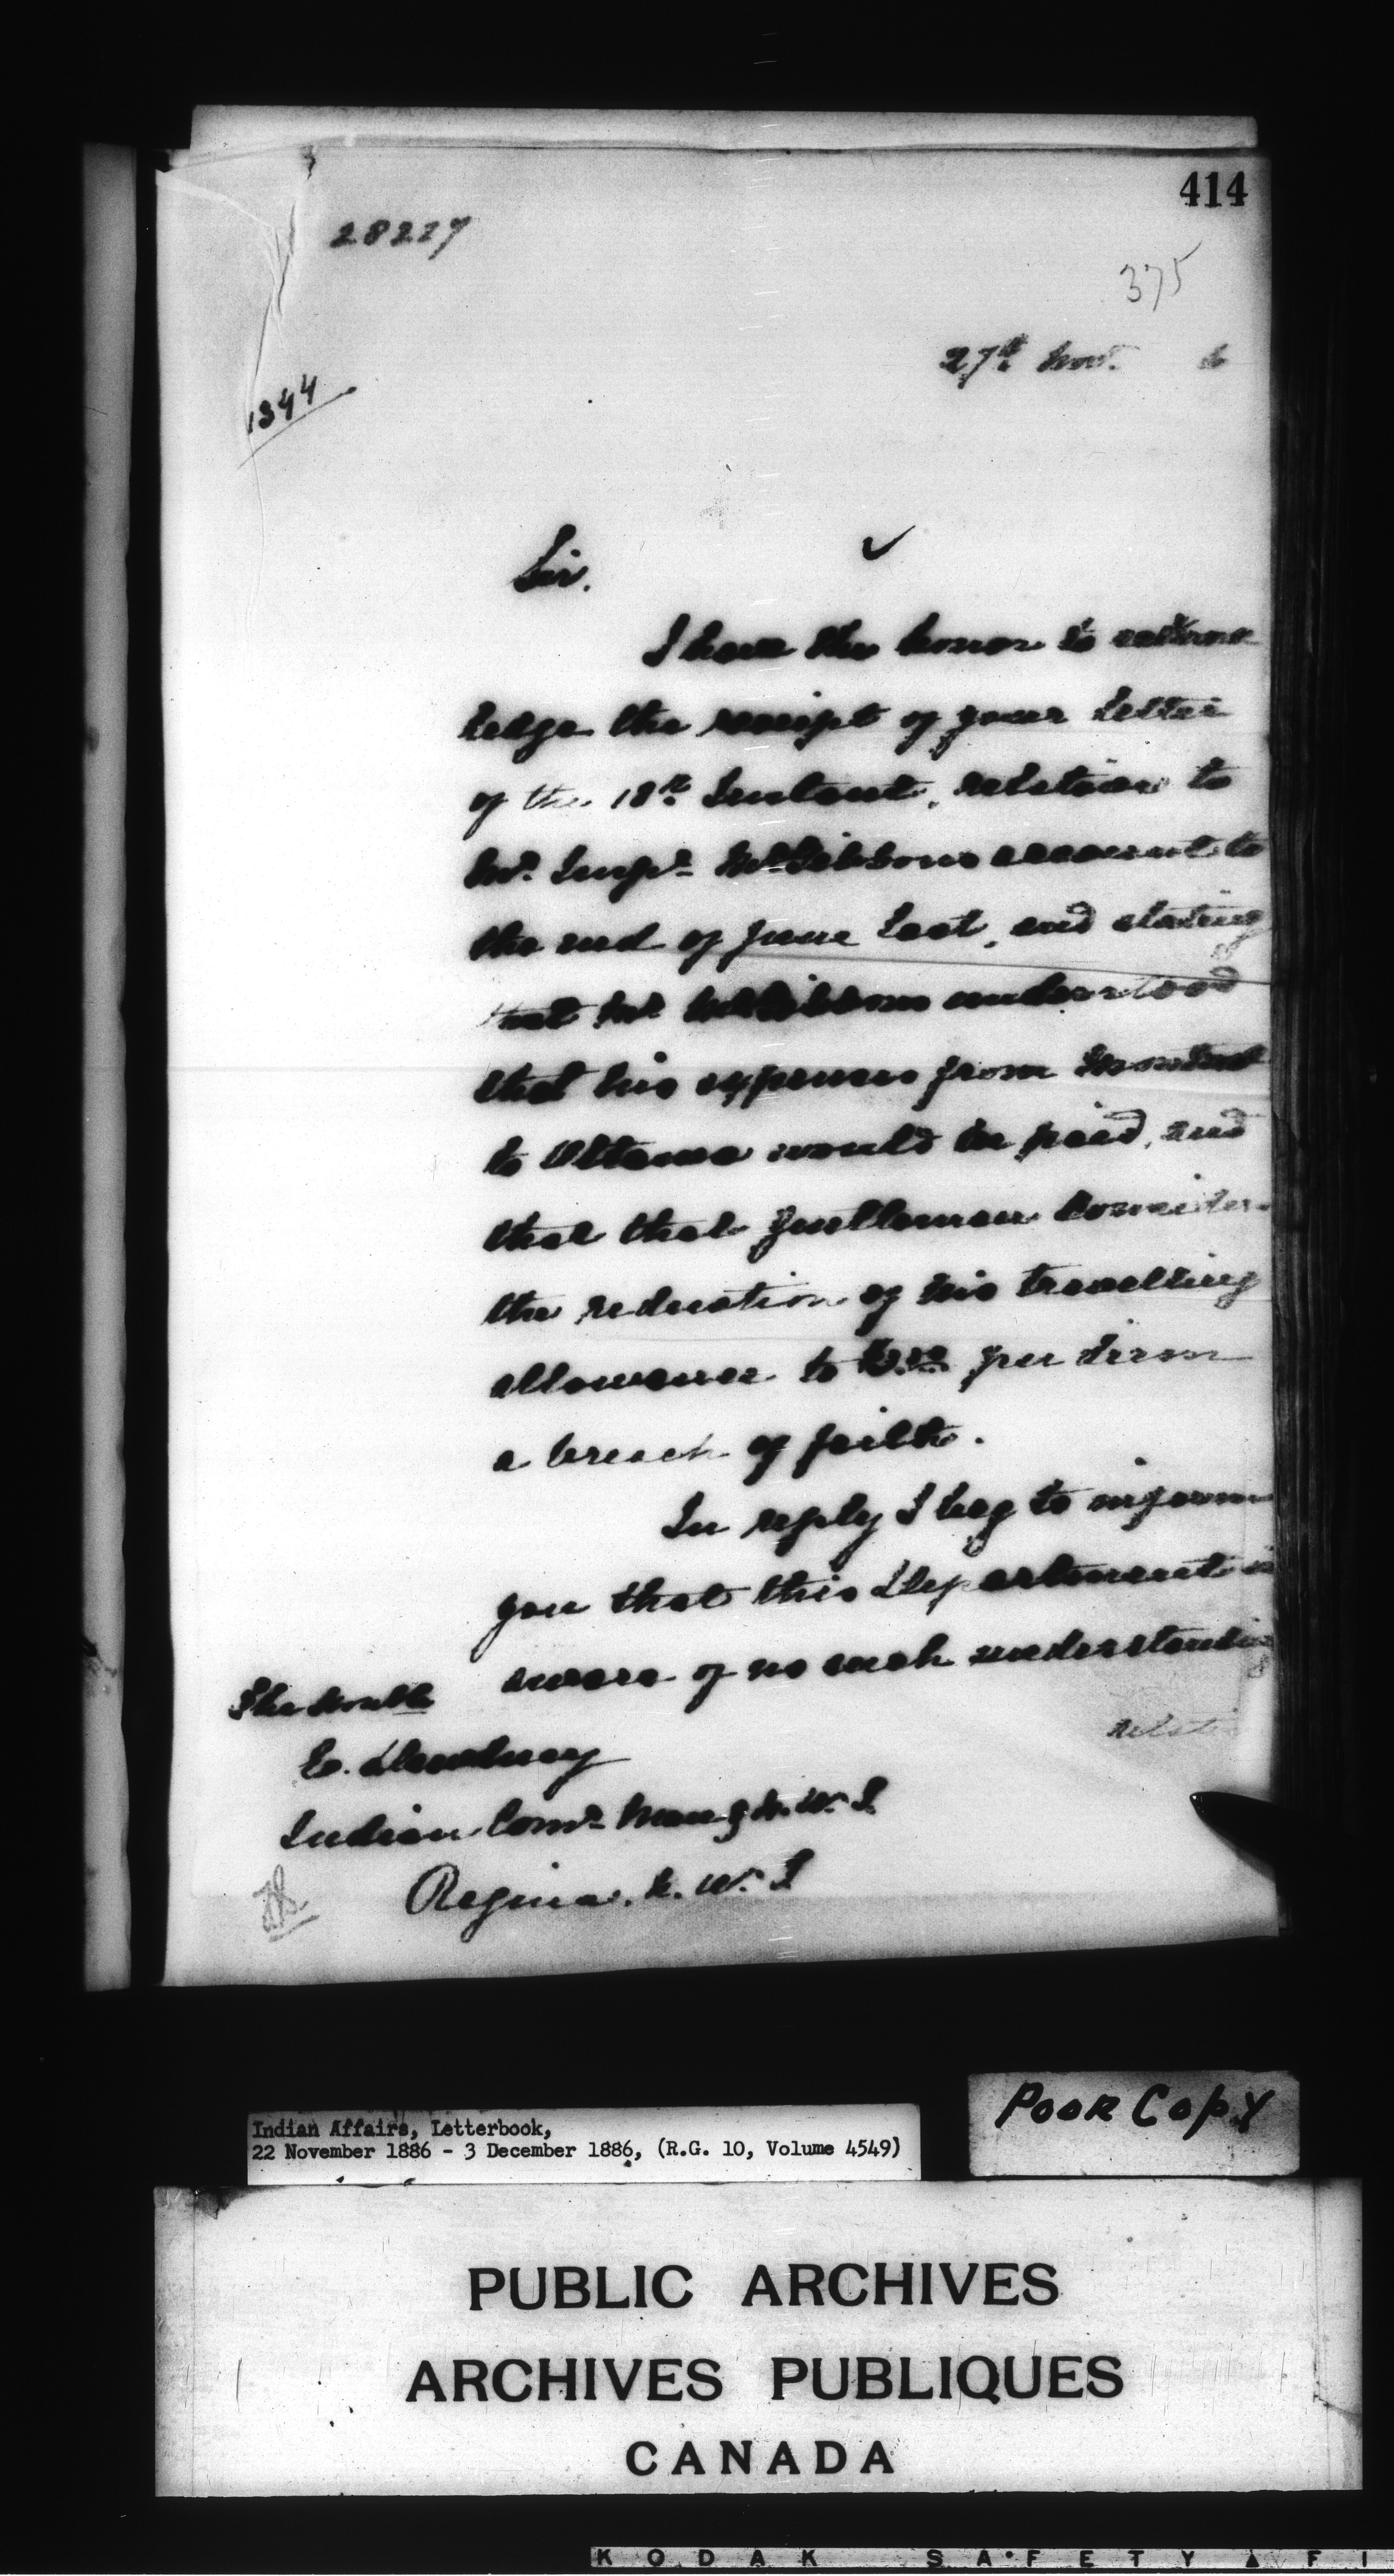 414
28227
375
27th Nov. 6
1344
Sir.
I have the honor to acknow
ledge the receipt of your letter
of the 18th Instant, relative to
Mr. Inspr. McGibbons account to
the end of June last, and stating
that Mr. McGibbon understood
that his expenses from Montreal
to Ottawa would be paid, and
that that gentleman consider
the reduction of his travelling
allowance to per diem
a breach of faith.
In reply I beg to inform
you that this Department is
aware of no such understanding
relative
The Honble
E. Dewdney
Indian Comr. Man & N.W.T.
Regina. N.W.T
Poor Copy
Indian Affairs, Letterbook,
22 November 1886 - 3 December 1886, (R.G. 10, Volume 4549)
PUBLIC ARCHIVES
ARCHIVES PUBLIQUES
CANADA
KODAK SAFETY FI